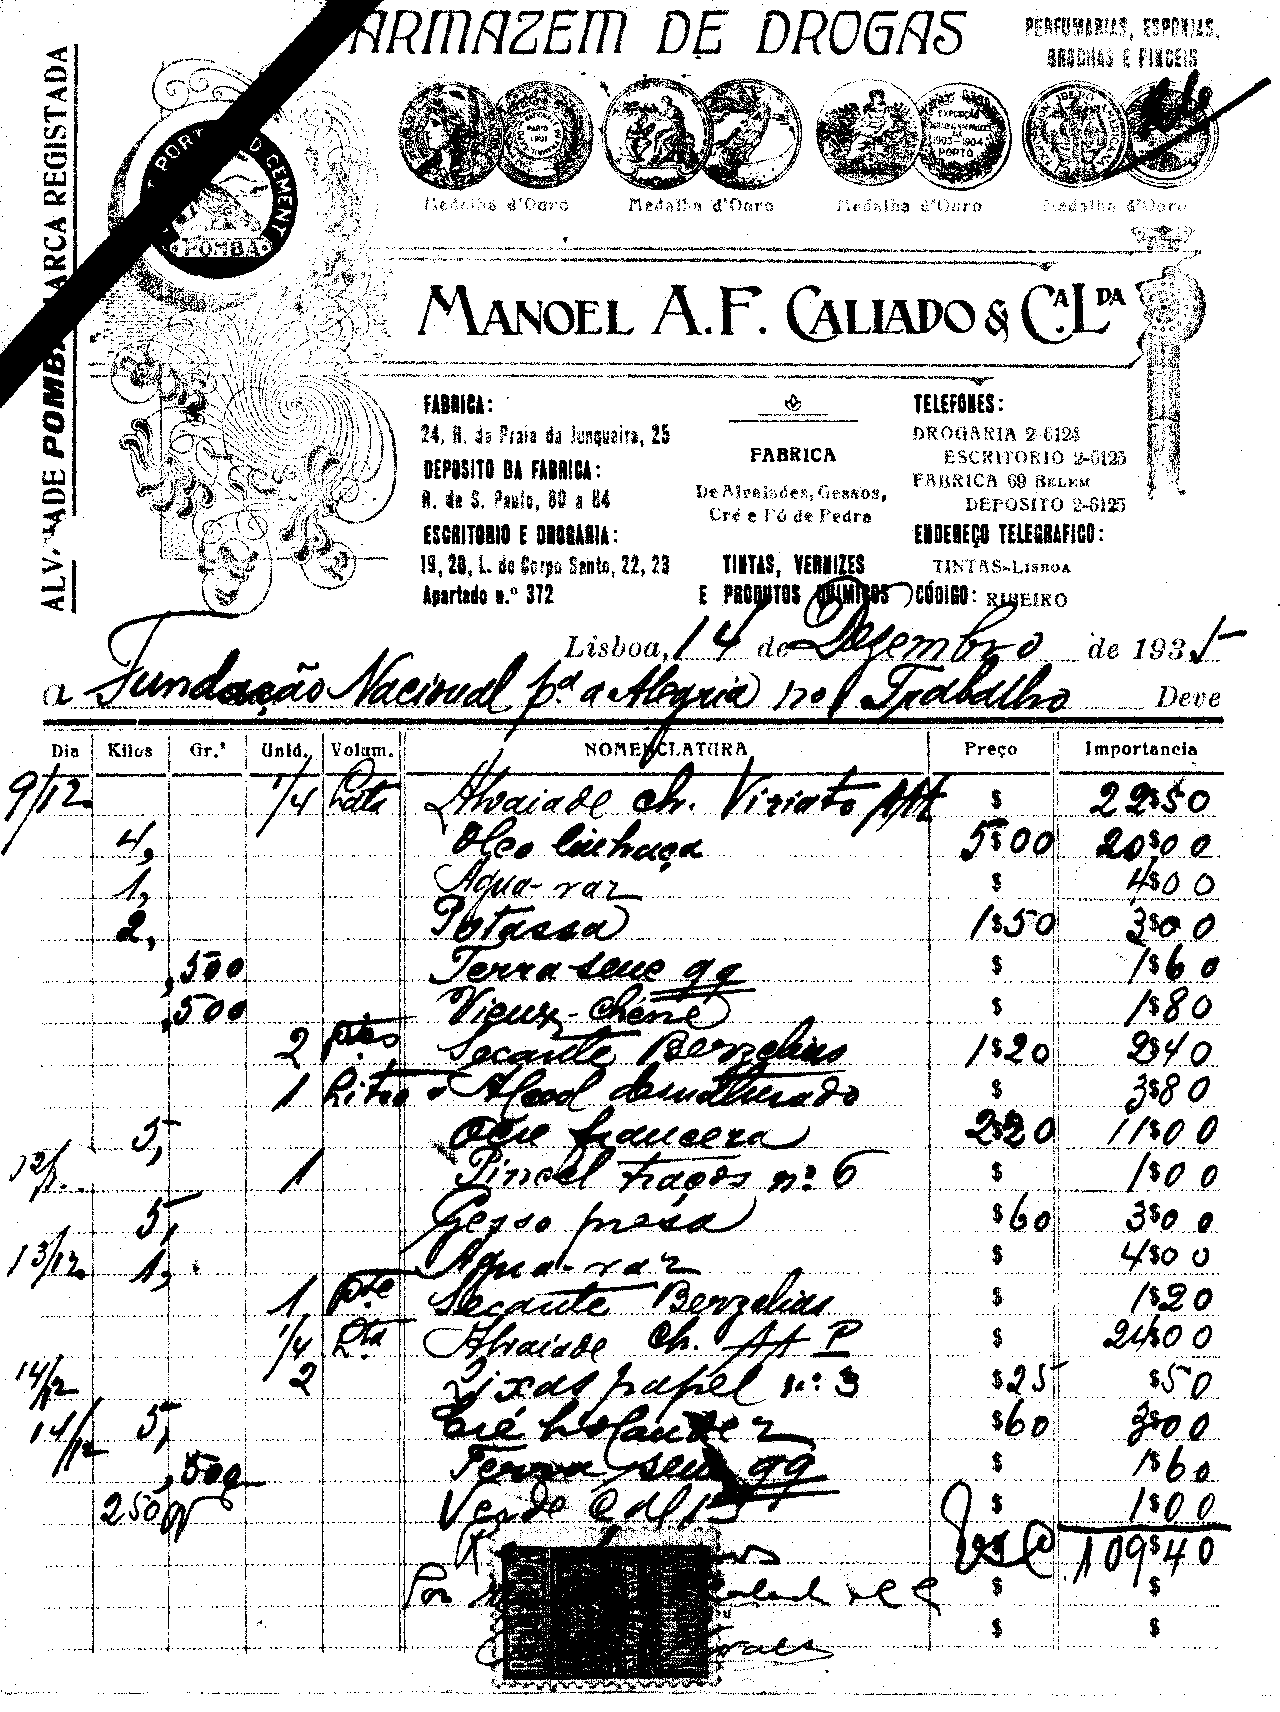 ARMAZEM DE DROGAS
PERFUMARIAS, ESPONJAS,
BROCHAS E PINCEIS
PORT D CEMENT
POMBA
Medalha d'Ouro Medalha d'Ouro Medalha d'Ouro Medalha d'Ouro
EXPOSIÇÃO
1903-1904
PORTO
ADE POMBA MARCA REGISTADA
MANOEL A. F. CALIADO & CA. LDA
FABRICA:
24, R. da Praia da Junqueira, 25
DEPOSITO DA FABRICA:
R. de S. Paulo, 80 a 84
ESCRITORIO E DROGARIA:
19, 20, L. do Corpo Santo, 22, 23
Apartado n.º 372
FABRICA
De Alvaiades, Gessos,
Cré e Pó de Pedra
TINTAS, VERNIZES
E PRODUTOS QUIMICOS
TELEFONES:
DROGARIA 2-6128
ESCRITORIO 2-6125
FABRICA 69 BELEM
DEPOSITO 2-6125
ENDEREÇO TELEGRAFICO:
TINTAS-LISBOA
CÓDIGO: RIBEIRO
Lisboa, 14 de Dezembro de 1935
a Fundação Nacional pª a Alegria no Trabalho Deve
Dia Kilos Gr.ˢ Unid. Volum. NOMENCLATURA Preço Importancia
9/12 1/4 Lata Alvaiade ch. Viriato $ 22$50
4, Oleo linhaça 5$00 20$00
1, Agua-raz $ 4$00
2, Potassa 1$50 3$00
,500 Terra sene gg $ 1$60
,500 Vieux-chene $ 1$80
2 ptes Secante Berzelias 1$20 2$40
1 Litro Alcool desnaturado $ 3$80
5, Ocre franceza 2$20 11$00
12/ 1 Pincel traços nº 6 $ 1$00
5, Gesso presa $60 3$00
13/12 1, Agua-raz $ 4$00
1 pte Secante Berzelias $ 1$20
1/4 Lta Alvaiade ch. AA P $ 24$00
14/12 2 Lixas papel nº 3 $25 $50
14/12 5, Cré holandez $60 3$00
,500 Terra sene gg $ 1$60
250 gr Verde $ 1$00
109$40
Por $ $
$ $